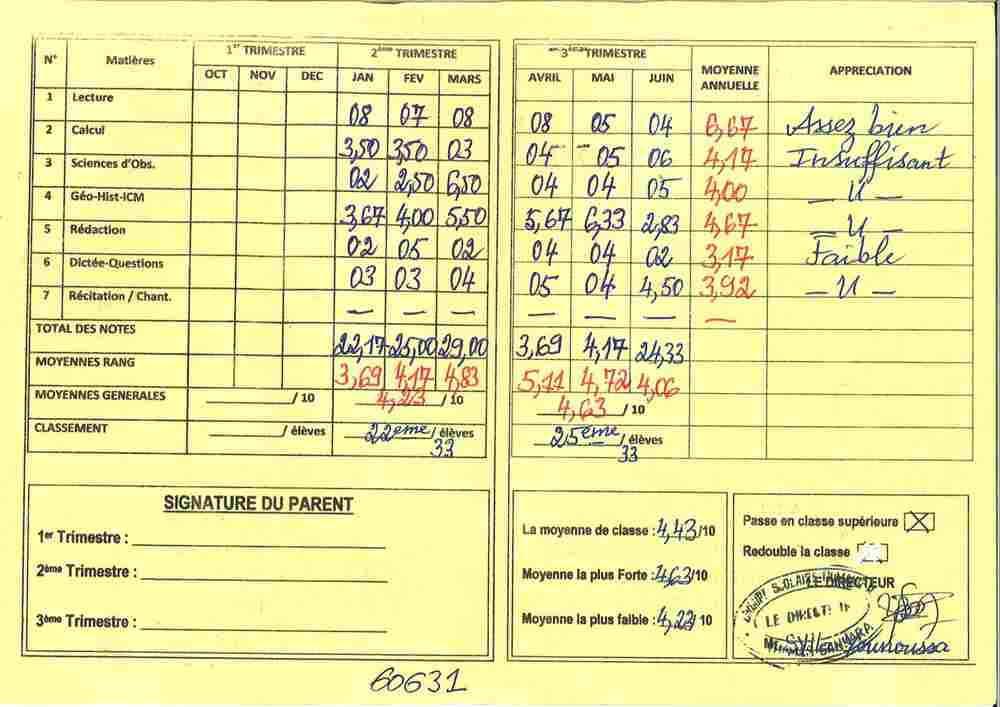 N° Matières 1er TRIMESTRE 2ème TRIMESTRE
OCT NOV DEC JAN FEV MARS
1 Lecture 08 07 08
2 Calcul 3,50 3,50 03
3 Sciences d'Obs. 02 2,50 6,50
4 Géo-Hist-ICM 3,67 4,00 5,50
5 Rédaction 02 05 02
6 Dictée-Questions 03 03 04
7 Récitation / Chant. — — —
TOTAL DES NOTES 22,17 25,00 29,00
MOYENNES RANG 3,69 4,17 4,83
MOYENNES GENERALES / 10 4,23 / 10
CLASSEMENT / élèves 22ème / élèves
33
3ème TRIMESTRE MOYENNE ANNUELLE APPRECIATION
AVRIL MAI JUIN
08 05 04 6,67 Assez bien
04 05 06 4,17 Insuffisant
04 04 05 4,00 — U —
5,67 6,33 2,83 4,67 — U —
04 04 02 3,17 Faible
05 04 4,50 3,92 — U —
— — — —
3,69 4,17 24,33
5,11 4,72 4,06
4,63 / 10
25ème / élèves
33
SIGNATURE DU PARENT
1er Trimestre :
2ème Trimestre :
3ème Trimestre :
La moyenne de classe : 4,43/10
Moyenne la plus Forte : 4,63/10
Moyenne la plus faible : 4,23/10
Passe en classe supérieure X
Redouble la classe
LE DIRECTEUR
LE DIRECT
Younoussa
60631